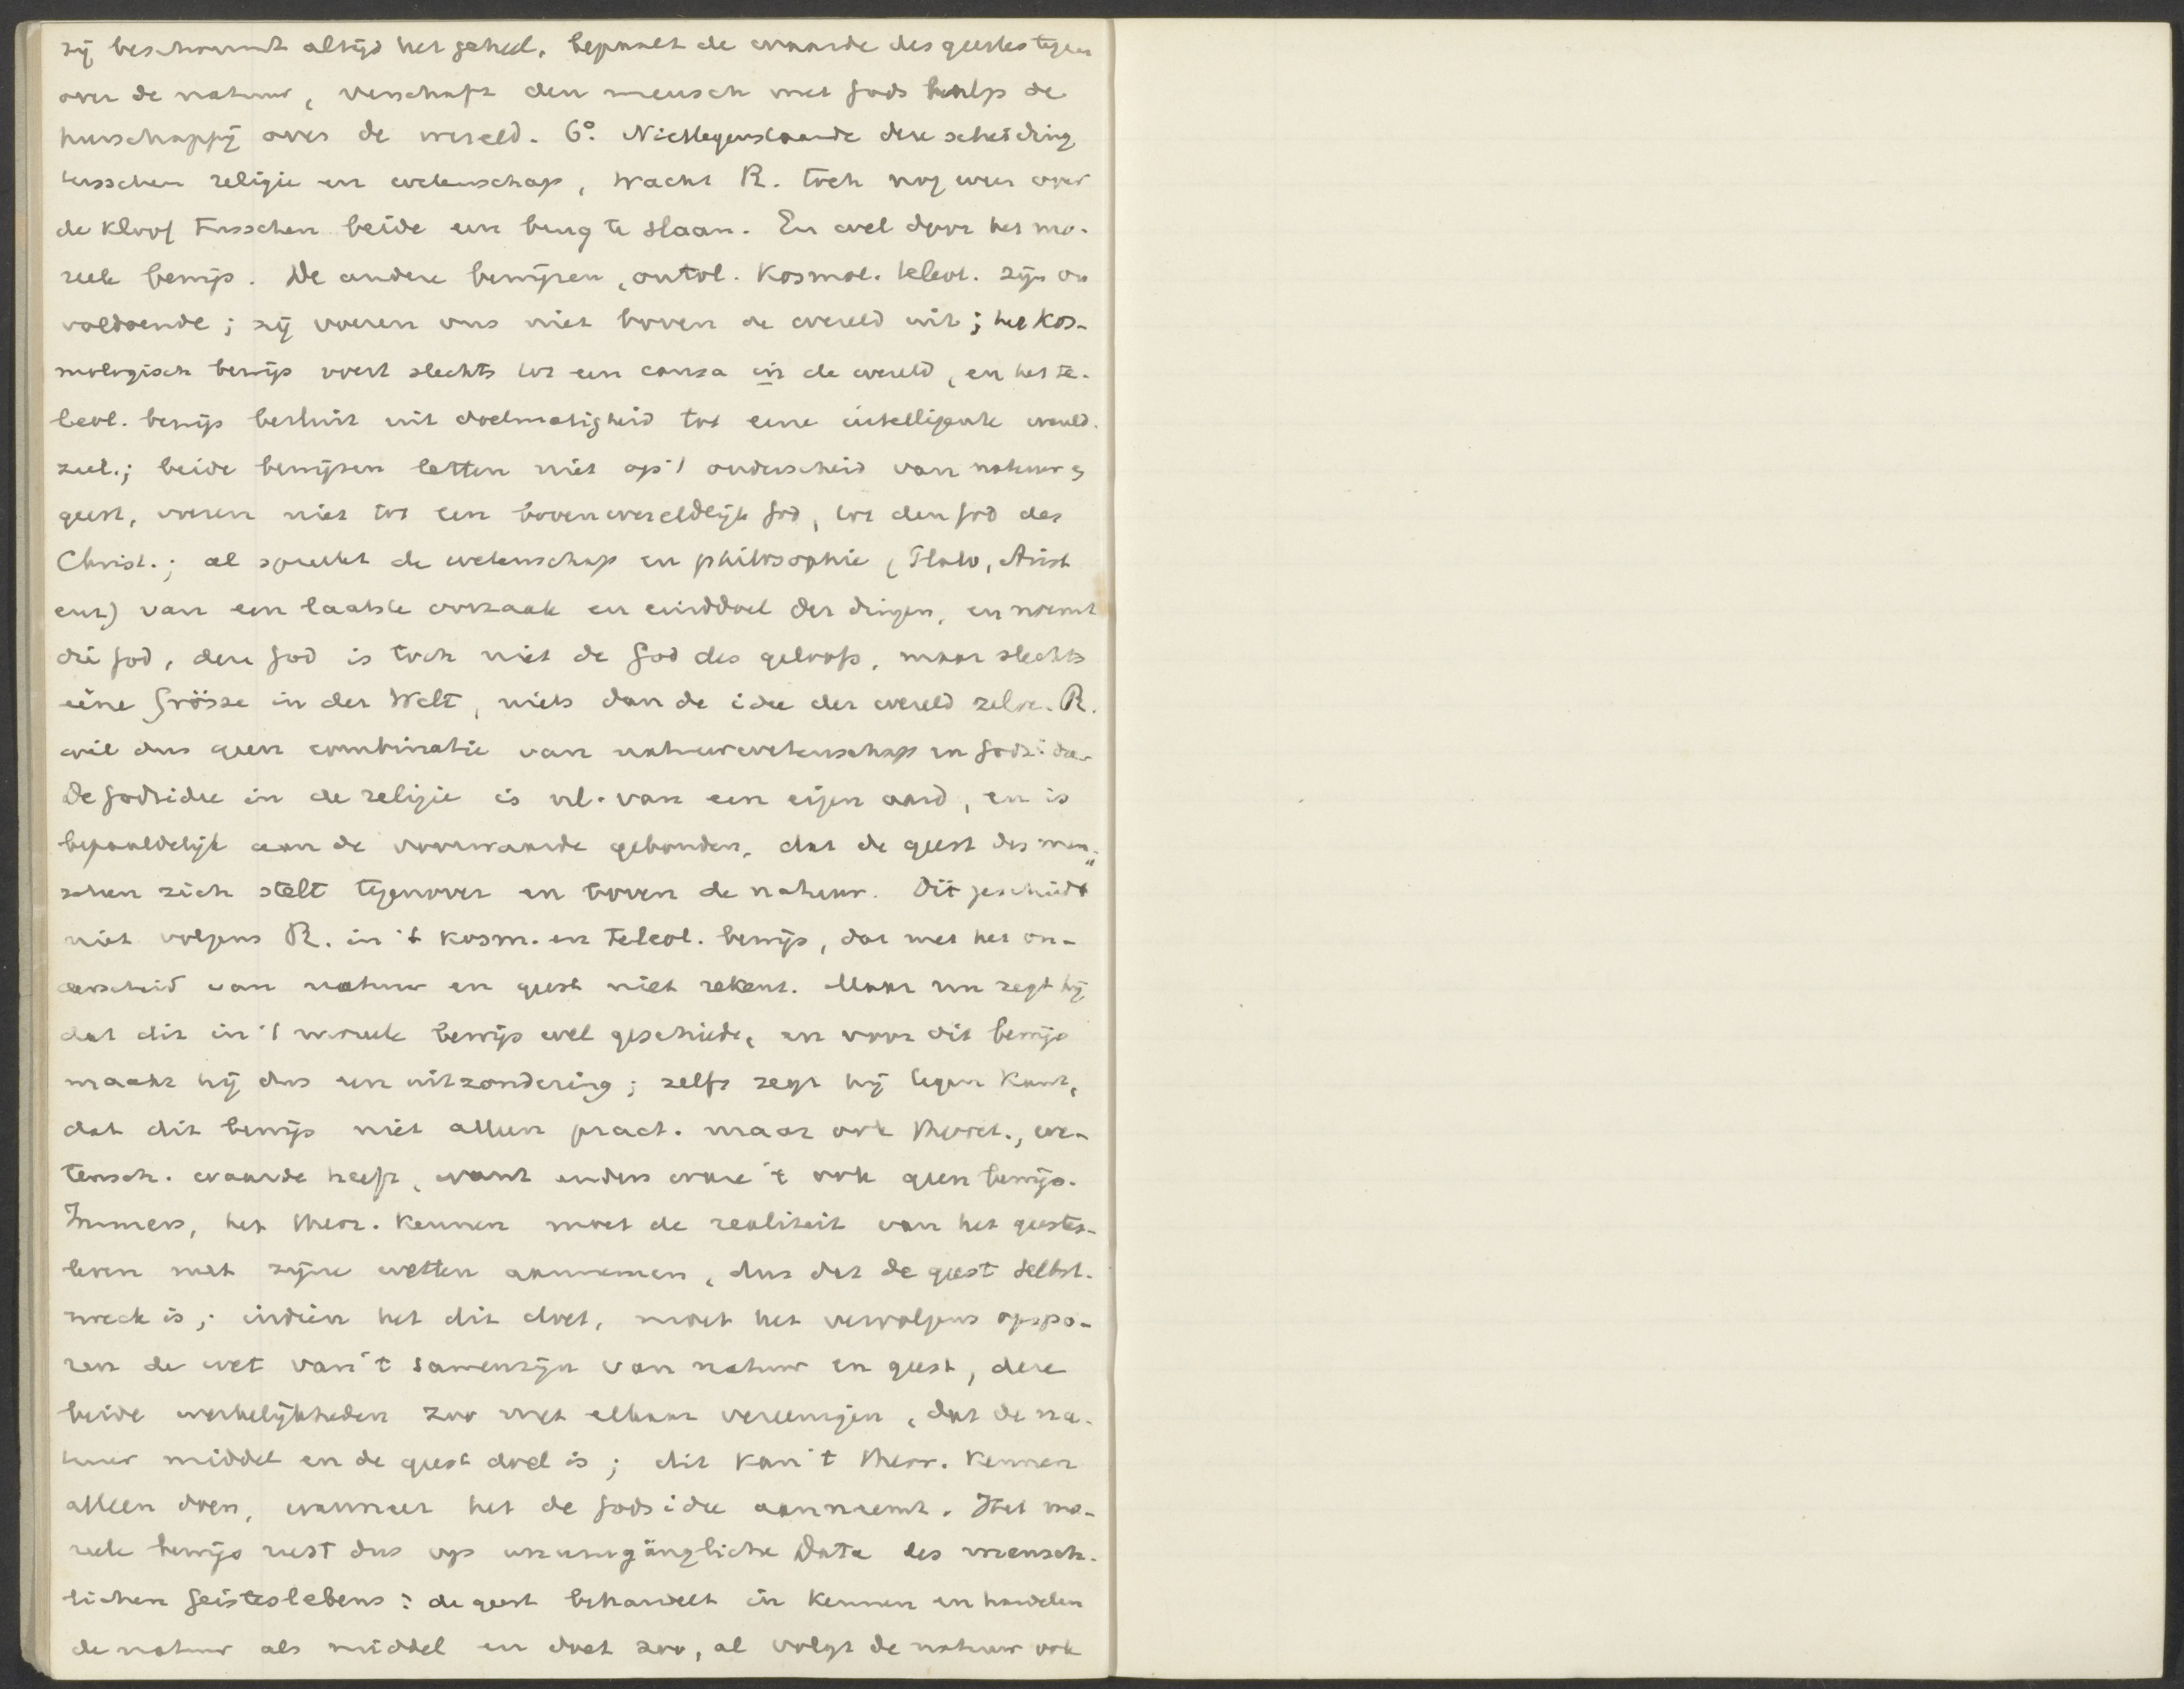 zij beschouwt altijd het geheel, bepaalt de waarde des geestes tegen
over de natuur, verschaft den mensch met Gods hulp de
heerschappij over de wereld. 6° Niettegenstaande deze scheiding
tusschen religie en wetenschap, tracht R. toch nog weer over
de kloof tusschen beide een brug te slaan. En wel door het mo-
reele bewijs. De andere bewijzen, ontol. kosmol. teleol. zijn on
voldoende; zij voeren ons niet boven de wereld uit; het kos-
mologisch bewijs voert slechts tot een causa in de wereld, en het te-
leol. bewijs besluit uit doelmatigheid tot eene intelligente wereld-
ziel.; beide bewijzen letten niet op 't onderscheid van natuur &
geest, voeren niet tot een bovenwereldlijk God, tot den God des
Christ.; al spreekt de wetenschap en philosophie (Plato, Arist
enz) van een laatste oorzaak en einddoel der dingen, en noemt
die God, deze God is toch niet de God des geloofs, maar slechts
eine Grösse in der Welt, niets dan de idee der wereld zelve. R.
wil dus geen combinatie van natuurwetenschap en Godsidee
De Godsidee in de religie is nl. van een eigen aard, en is
bepaaldelijk aan de voorwaarde gebonden, dat de geest des men-
schen zich stelt tegenover en boven de natuur. Dit geschiedt
niet volgens R. in 't kosm. en teleol. bewijs, dat met het on-
derscheid van natuur en geest niet rekent. Maar nu zegt hij
dat dit in 't moreele bewijs wel geschiede, en voor dit bewijs
maakt hij dus een uitzondering; zelfs zegt hij tegen Kant,
dat dit bewijs niet alleen pract. maar ook theoret., we-
tensch. waarde heeft, want anders ware 't ook geen bewijs.
Immers, het theor. kennen moet de realiteit van het geestes-
leven met zijne wetten aannemen, dus dat de geest Selbst-
zweck is; indien het dit doet, moet het vervolgens opspo-
ren de wet van 't samenzijn van natuur en geest, deze
beide werkelijkheden zoo met elkaar vereenigen, dat de na-
tuur middel en de geest doel is; dit kan 't theor. kennen
alleen doen, wanneer het de Godsidee aanneemt. Het mo-
reele bewijs rust dus op unumgängliche Data des mensch-
lichen Geisteslebens: de geest behandelt in kennen en handelen
de natuur als middel en doet zoo, al volgt de natuur ook